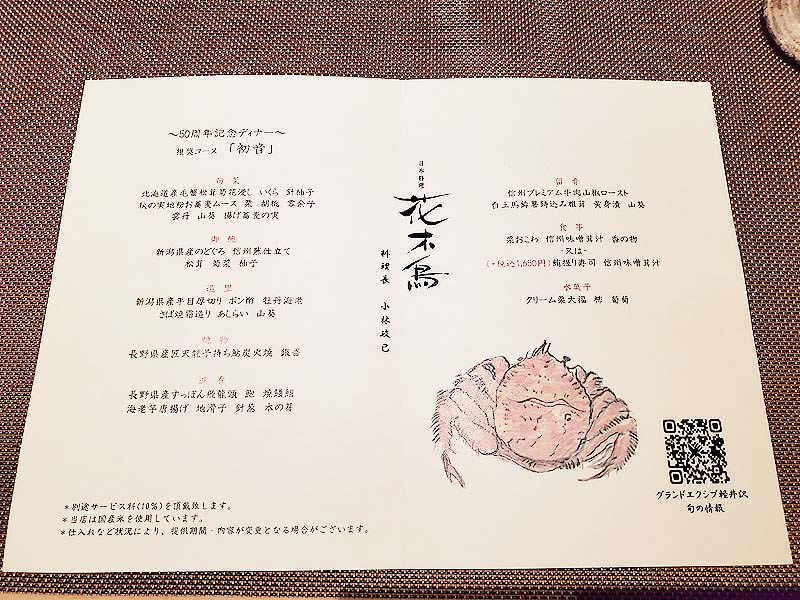 ～50周年記念ディナー～
推奨コース 「初音」
旬菜
北海道産毛蟹松茸菊花浸し いくら 針柚子
秋の実地粉お蕎麦ムース 栗 胡桃 零余子
雲丹 山葵 揚げ蕎麦の実
御椀
新潟県産のどぐろ 信州煮仕立て
松茸 菊菜 柚子
造里
新潟県産平目厚切り ポン酢 牡丹海老
さば焼霜造り あしらい 山葵
焼物
長野県産匠天龍子持ち鮎炭火焼 銀杏
進肴
長野県産すっぽん飛龍頭 鮑
海老芋唐揚げ 地滑子 針葱 木の芽
＊別途サービス料(10%)を頂戴致します。
＊当店は国産米を使用しています。
＊仕入れなど状況により、提供期間・内容が変更となる場合がございます。
日本料理
花木鳥
料理長 小林政己
留肴
信州プレミアム牛肉山椒ロースト
白土馬鈴薯鋳込み椎茸 黄身漬 山葵
食事
栗おこわ 信州味噌茸汁 香の物
-又は-
(+税込1,650円)鮪握り寿司 信州味噌茸汁
水菓子
クリーム栗大福 柿 葡萄
グランドエクシブ軽井沢
旬の情報